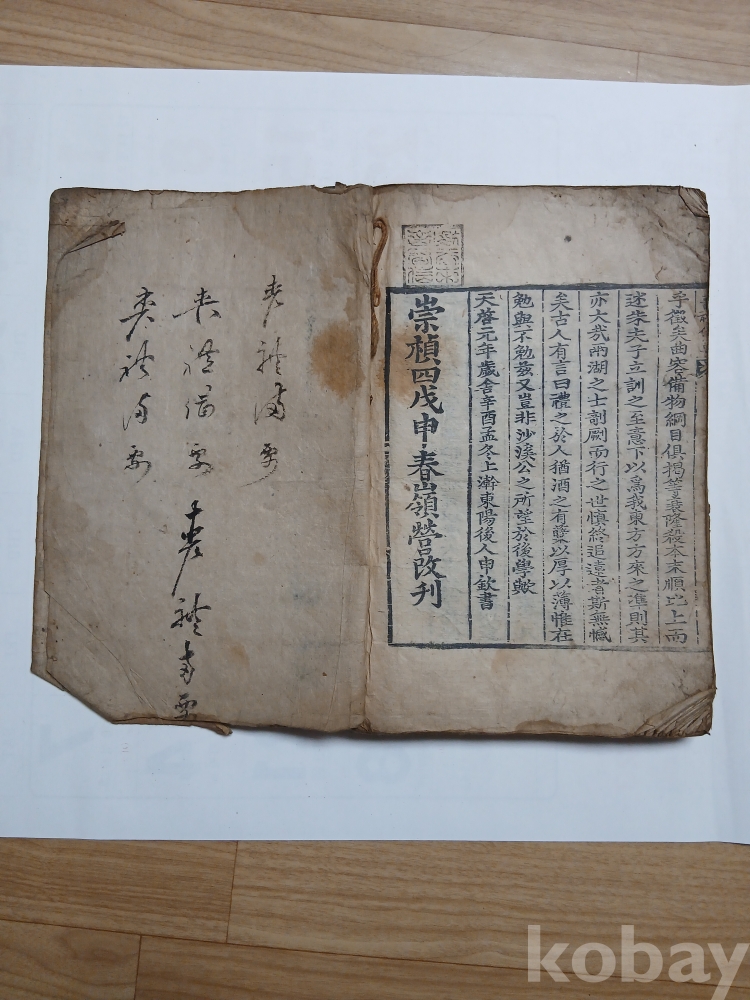 徵矣曲容備物綱目俱揭等衰隆殺本末順比上而
述朱夫子立訓之至意下以爲我東方方來之準則其
亦大哉兩湖之士剞劂而行之世愼終追遠者斯無憾
矣古人有言曰禮之於人猶酒之有糵以厚以薄惟在
勉與不勉玆又豈非沙溪公之所望於後學歟
天啓元年歲舍辛酉孟冬上澣東陽後人申欽書
崇禎四戊申春嶺營改刊
喪禮備要
喪禮備要
喪禮備要
喪禮備要
kobay